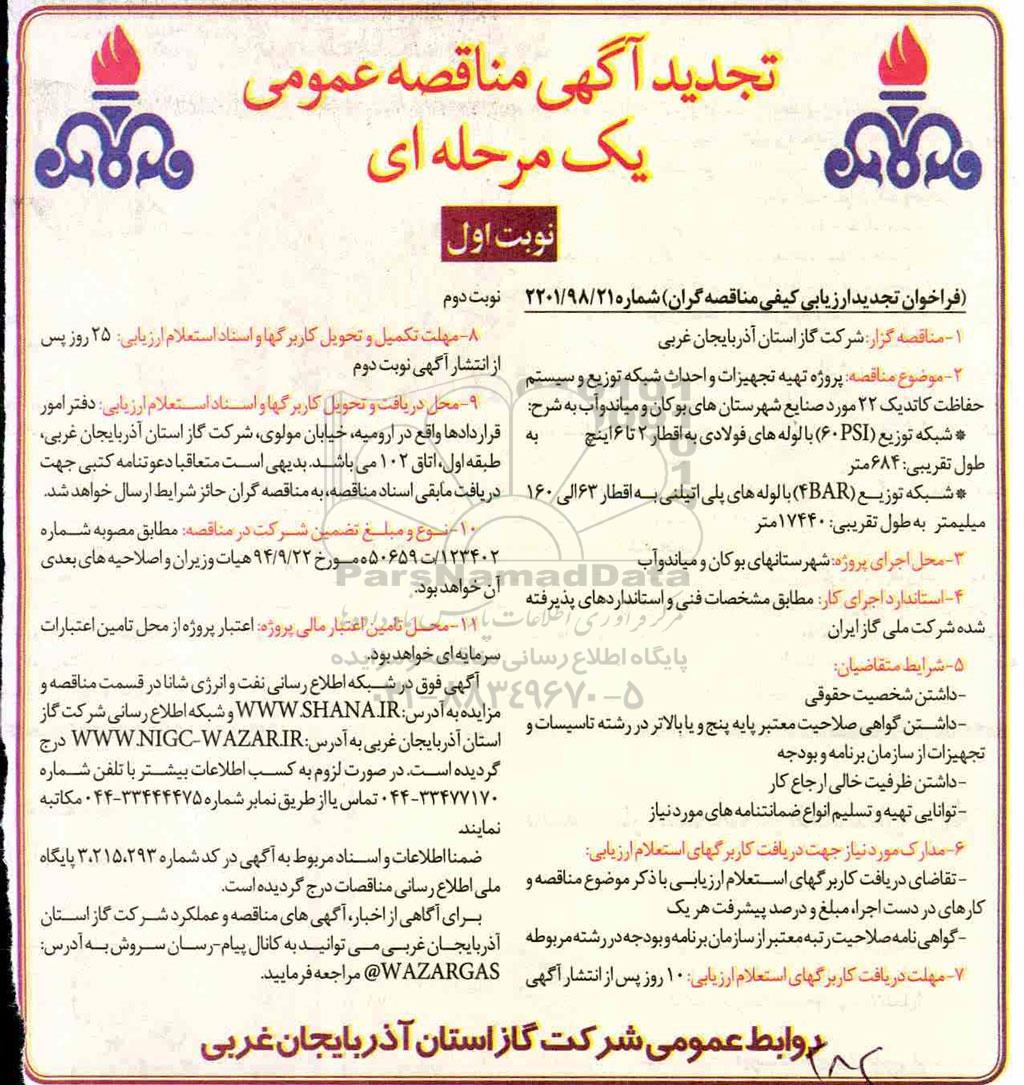 تجدید آگهی مناقصه عمومی
یک مرحله ای
نوبت اول
(فراخوان تجدید ارزیابی کیفی مناقصه گران) شماره ۲۲۰۱/۹۸/۲۱
۱-مناقصه گزار: شرکت گاز استان آذربایجان غربی
۲-موضوع مناقصه: پروژه تهیه تجهیزات و احداث شبکه توزیع و سیستم
حفاظت کاتدیک ۲۲ مورد صنایع شهرستان های بوکان و میاندوآب به شرح:
* شبکه توزیع (۶۰PSI) با لوله های فولادی به اقطار ۲ تا ۶ اینچ به
طول تقریبی: ۶۸۴ متر
* شبکه توزیع (۴BAR) با لوله های پلی اتیلنی به اقطار ۶۳ الی ۱۶۰
میلیمتر به طول تقریبی: ۱۷۴۴۰ متر
۳-محل اجرای پروژه: شهرستانهای بوکان و میاندوآب
۴-استاندارد اجرای کار: مطابق مشخصات فنی و استانداردهای پذیرفته
شده شرکت ملی گاز ایران
۵-شرایط متقاضیان:
-داشتن شخصیت حقوقی
-داشتن گواهی صلاحیت معتبر پایه پنج و یا بالاتر در رشته تاسیسات و
تجهیزات از سازمان برنامه و بودجه
-داشتن ظرفیت خالی ارجاع کار
-توانایی تهیه و تسلیم انواع ضمانتنامه های مورد نیاز
۶-مدارک مورد نیاز جهت دریافت کاربرگهای استعلام ارزیابی:
-تقاضای دریافت کاربرگهای استعلام ارزیابی با ذکر موضوع مناقصه و
کارهای در دست اجرا، مبلغ و درصد پیشرفت هر یک
-گواهی نامه صلاحیت رتبه معتبر از سازمان برنامه و بودجه در رشته مربوطه
۷-مهلت دریافت کاربرگهای استعلام ارزیابی: ۱۰ روز پس از انتشار آگهی
نوبت دوم
۸-مهلت تکمیل و تحویل کاربرگها و اسناد استعلام ارزیابی: ۲۵ روز پس
از انتشار آگهی نوبت دوم
۹-محل دریافت و تحویل کاربرگها و اسناد استعلام ارزیابی: دفتر امور
قراردادها واقع در ارومیه، خیابان مولوی، شرکت گاز استان آذربایجان غربی،
طبقه اول، اتاق ۱۰۲ می باشد. بدیهی است متعاقبا دعوتنامه کتبی جهت
دریافت مابقی اسناد مناقصه، به مناقصه گران حائز شرایط ارسال خواهد شد.
۱۰-نوع و مبلغ تضمین شرکت در مناقصه: مطابق مصوبه شماره
۱۲۳۴۰۲/ت۵۰۶۵۹ه مورخ ۹۴/۹/۲۲ هیات وزیران و اصلاحیه های بعدی
آن خواهد بود.
۱۱-محل تامین اعتبار مالی پروژه: اعتبار پروژه از محل تامین اعتبارات
سرمایه ای خواهد بود.
آگهی فوق در شبکه اطلاع رسانی نفت و انرژی شانا در قسمت مناقصه و
مزایده به آدرس: WWW.SHANA.IR و شبکه اطلاع رسانی شرکت گاز
استان آذربایجان غربی به آدرس: WWW.NIGC-WAZAR.IR درج
گردیده است. در صورت لزوم به کسب اطلاعات بیشتر با تلفن شماره
۰۴۴-۳۳۴۷۷۱۷۰ تماس یا از طریق نمابر شماره ۰۴۴-۳۳۴۴۴۴۷۵ مکاتبه
نمایند.
ضمنا اطلاعات و اسناد مربوط به آگهی در کد شماره ۳،۲۱۵،۲۹۳ پایگاه
ملی اطلاع رسانی مناقصات درج گردیده است.
برای آگاهی از اخبار، آگهی های مناقصه و عملکرد شرکت گاز استان
آذربایجان غربی می توانید به کانال پیام-رسان سروش به آدرس:
@WAZARGAS مراجعه فرمایید.
روابط عمومی شرکت گاز استان آذربایجان غربی
ParsNamadData
پایگاه اطلاع رسانی مناقصه و مزایده
۰۲۱-۸۸۳۴۹۶۷۰-۵